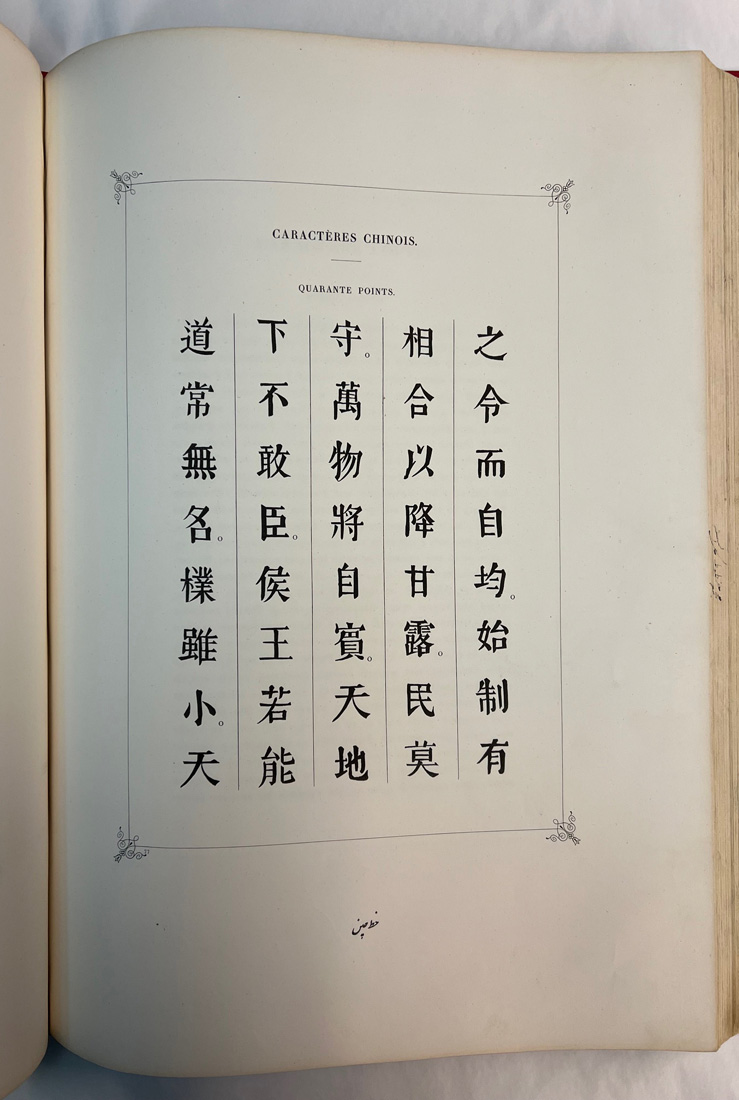 CARACTÈRES CHINOIS.
QUARANTE POINTS.
道常無名。樸雖小。天
下不敢臣。侯王若能
守。萬物將自賓。天地
相合以降甘露。民莫
之令而自均。始制有
خط چین